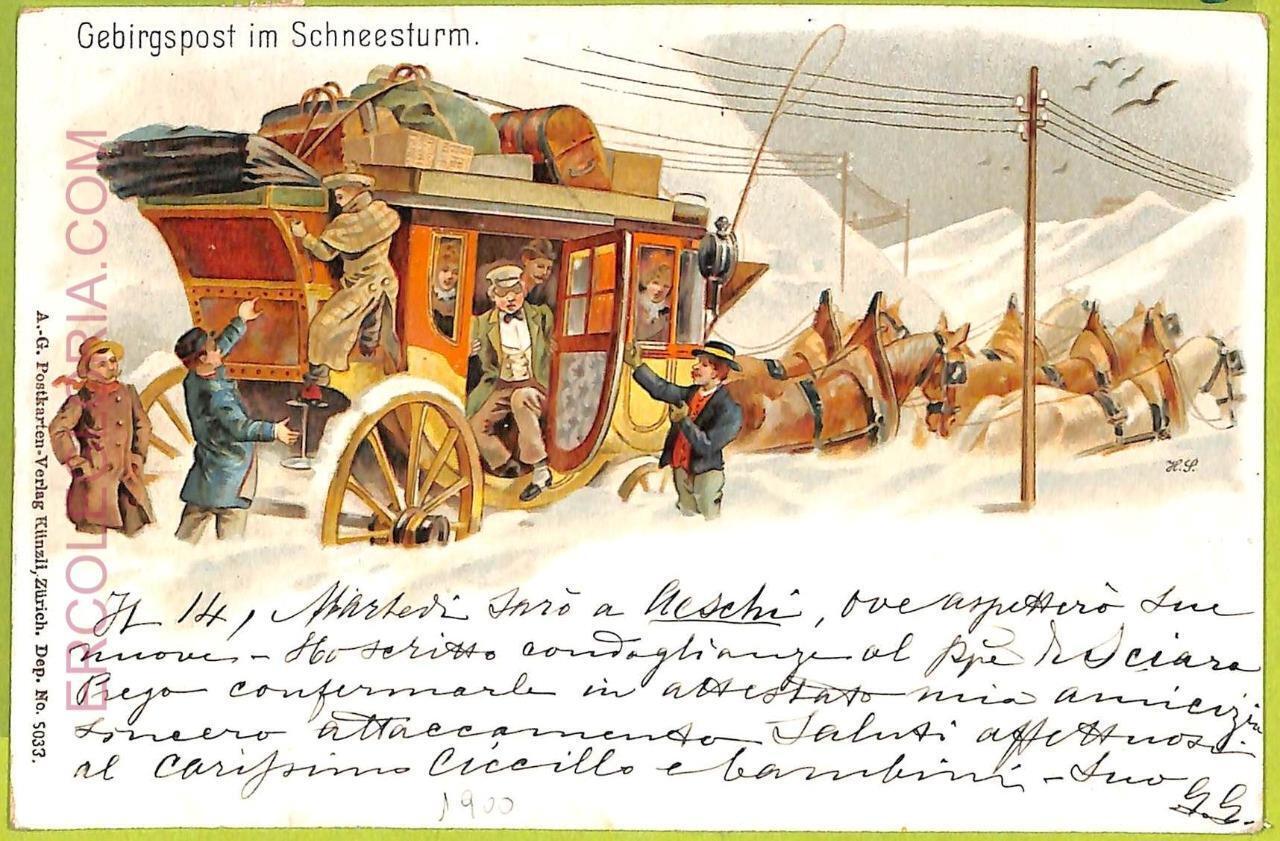 Gebirgspost im Schneesturm.
H. S.
A.-G. Postkarten-Verlag Künzli, Zürich. Dep. No. 5033.
ERCOLE ARIA.COM
Il 14, Martedì sarò a Aeschi, ove aspetterò sue
nuove - Ho scritto condoglianze al Ppe di Sciara
Prego confermarle in attestato mia amicizia
sincero attaccamento Saluti affettuosi
al carissimo Ciccillo e bambini - Suo
G.G.
1900